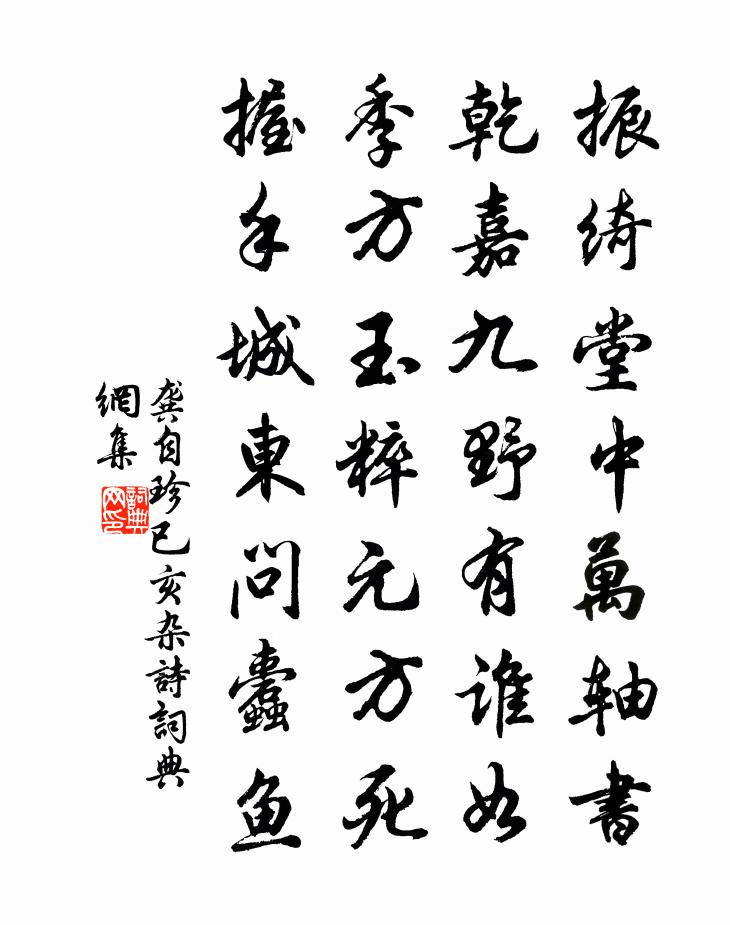 振绮堂中萬轴書
乾嘉九野有谁如
季方玉粹元方死
握手城東問蠹鱼
龚自珍己亥杂詩詞典
網集
詞典
网印